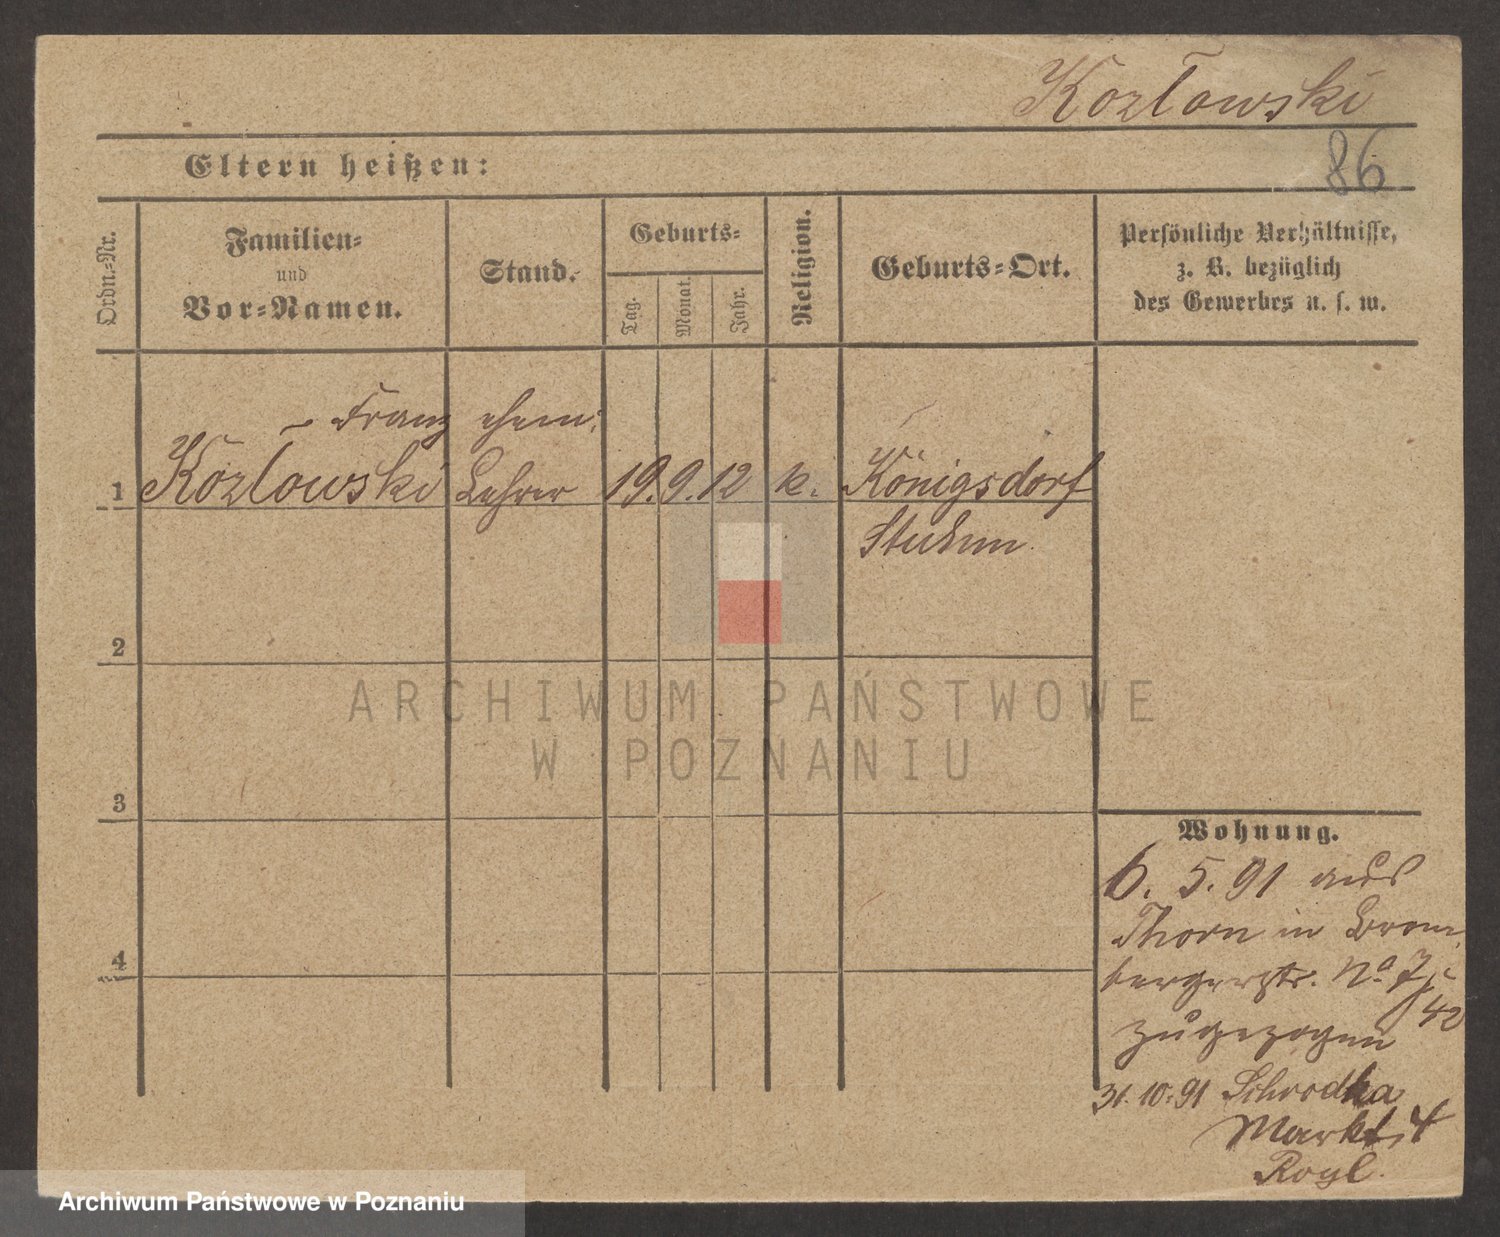 Kozłowski
86
Eltern heißen:
Ordn.=Nr.
Familien=
und
Vor=Namen.
Stand.
Geburts=
Tag.
Monat.
Jahr.
Religion.
Geburts=Ort.
Persönliche Verhältnisse,
z. B. bezüglich
des Gewerbes u. s. w.
Franz ehem:
1 Kozłowski Lehrer 19. 9. 12 k. Königsdorf
Stuhm
2
3
4
Wohnung.
6. 5. 91 aus
Thorn in Brom
bergerstr. No 7
42
zugezogen
31. 10. 91 Schrodka
Markt 4
ARCHIWUM PAŃSTWOWE
W POZNANIU
Archiwum Państwowe w Poznaniu